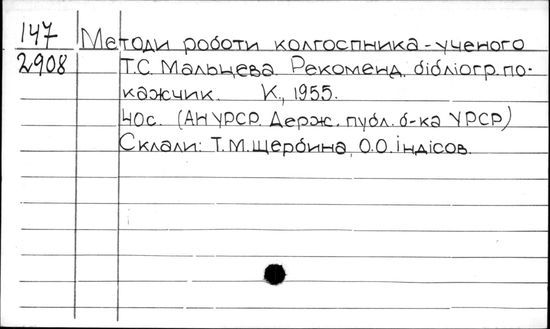 147
2908
Методи роботи колгоспника-ученого
Т.С. Мальцева. Рекоменд. бібліогр. по-
кажчик. К., 1955.
40с. (АН УРСР. Держ. публ. б-ка УРСР)
Склали: Т.М. Щербина, О.О. Індісов.